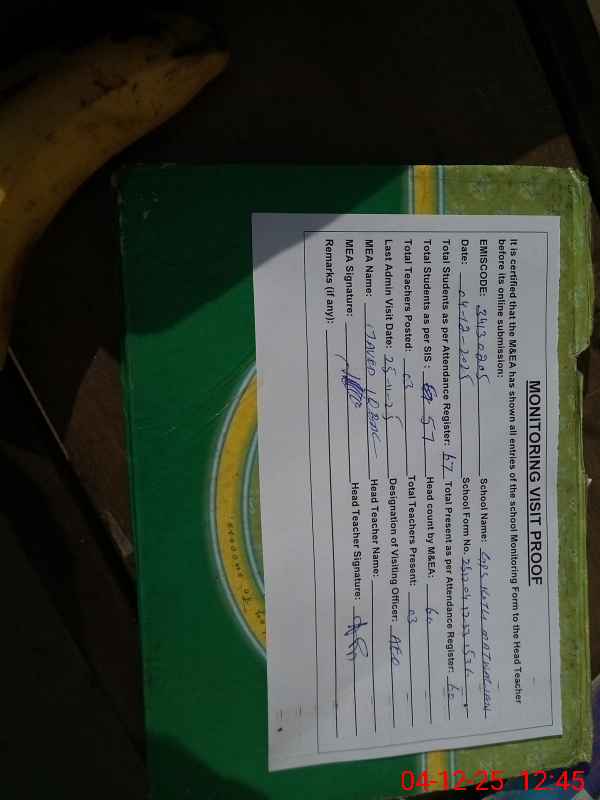 MONITORING VISIT PROOF
It is certified that the M&EA has shown all entries of the school Monitoring Form to the Head Teacher
before its online submission:
EMISCODE: 34130205 School Name: GPS
Date: 04-12-2025 School Form No.
Total Students as per Attendance Register: 67 Total Present as per Attendance Register: 60
Total Students as per SIS : 57 Head count by M&EA: 60
Total Teachers Posted: 03 Total Teachers Present: 03
Last Admin Visit Date: 25-11-25 Designation of Visiting Officer: AEO
MEA Name: JAVED IQBAL Head Teacher Name:
MEA Signature: Head Teacher Signature:
Remarks (if any):
04-12-25 12:45